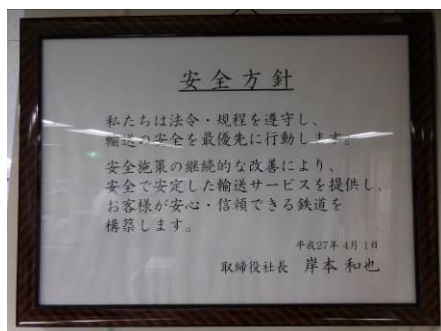 安全方針
私たちは法令・規程を遵守し、
輸送の安全を最優先に行動します。
安全施策の継続的な改善により、
安全で安定した輸送サービスを提供し、
お客様が安心・信頼できる鉄道を
構築します。
平成27年4月1日
取締役社長 岸本 和也